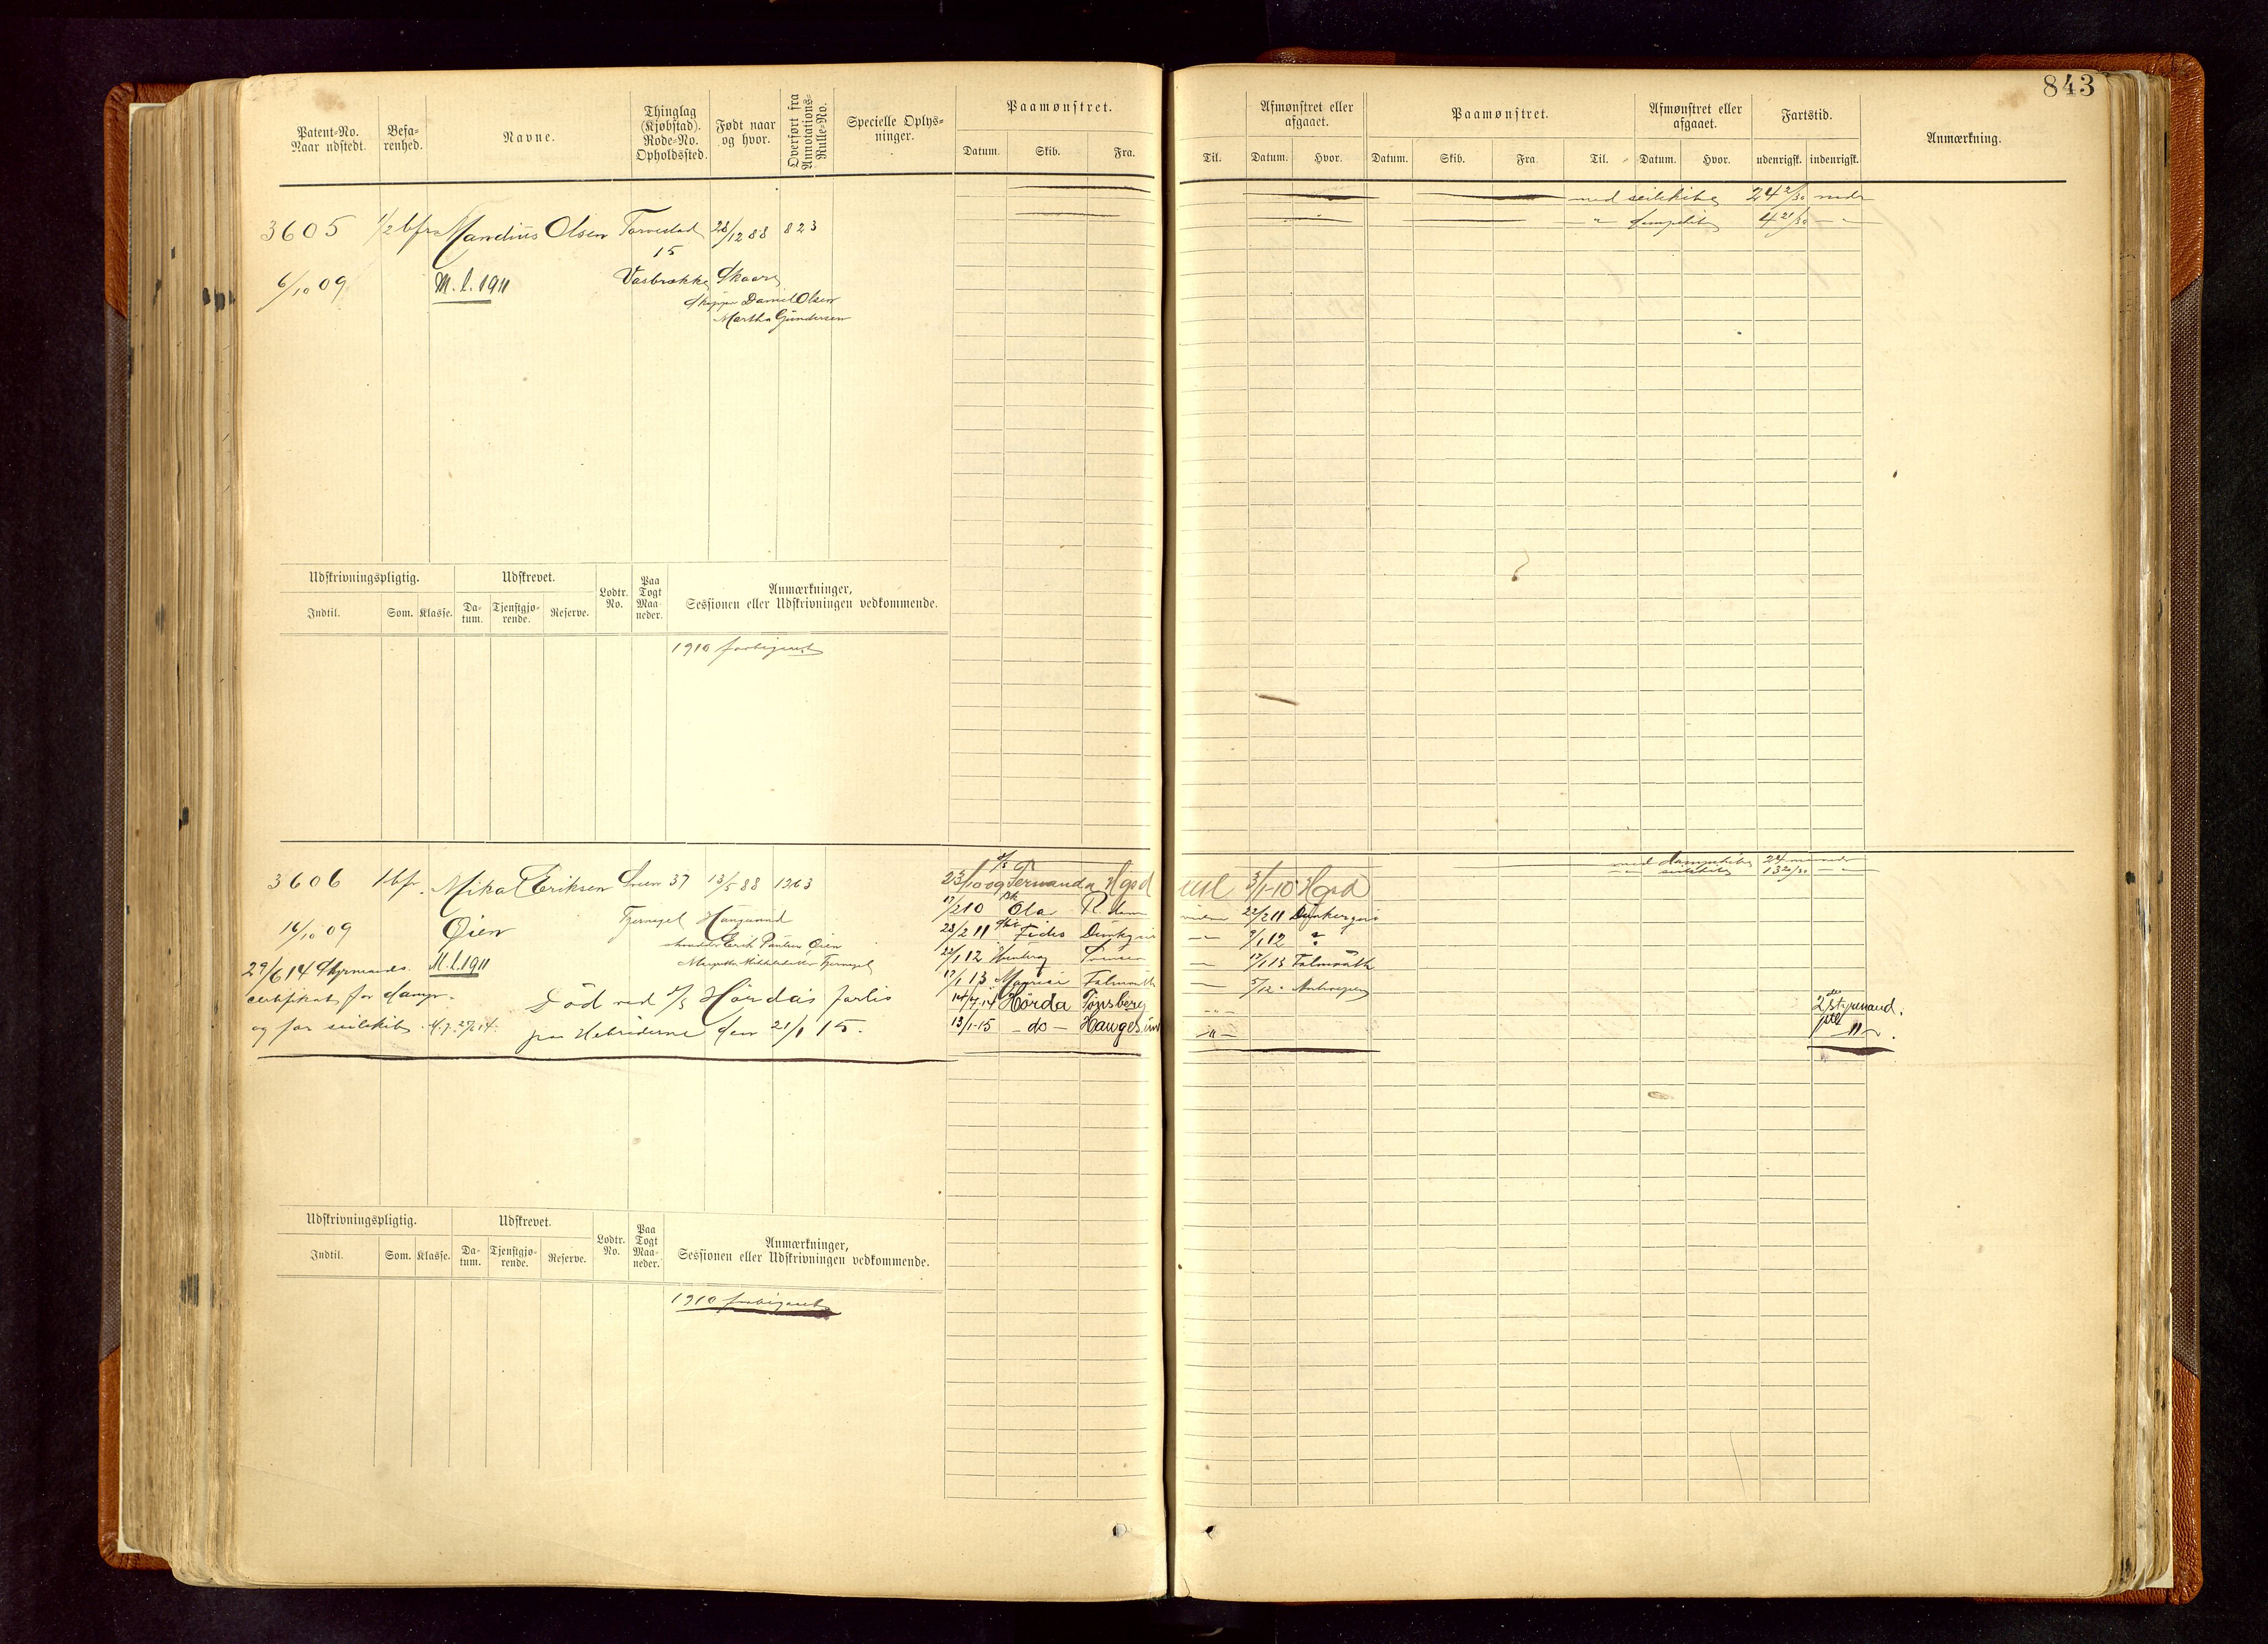 843
Patent-No. Naar udstedt.
Befa-renhed.
Navne.
Thinglag (Kjøbstad). Rode-No. Opholdssted.
Født naar og hvor.
Overført fra Annotations-Rulle-No.
Specielle Oplys-ninger.
Paamønstret.
Datum. Skib. Fra.
Til.
Afmønstret eller afgaaet.
Datum. Hvor.
Paamønstret.
Datum. Skib. Fra. Til.
Afmønstret eller afgaaet.
Datum. Hvor.
Fartstid.
udenrigsk. indenrigsk.
Anmærkning.
med seilskibe 24 2/30 mndr
-"- dampskib 4 21/30 -"-
3605 1/2 bfr Mandius Olsen Torvestad 28/12 88 823
15
6/10 09 M.l. 1911 Vasbrække Skaare
Skipper Daniel Olsen
Martha Gundersen
Udskrivningspligtig. Udskrevet. Lodtr. No. Paa Togt Maa-neder. Anmærkninger, Sessionen eller Udskrivningen vedkommende.
Indtil. Som. Klasse. Da-tum. Tjenstgjø-rende. Reserve.
1910 forbigaaet
med dampskibe 24 mndr
-"- seilskibe 13 20/30 -"-
3606 1 bfr. Mikal Eriksen Sveen 37 13/5 88 1263
23/10 09 S/S Fernanda Hgsd
3/1-10 Hgsd
17/2 10 Bk Ola R.dam
22/2 11 Dunkerque
16/10 09 Øien Tjernagel Haugesund
23/2 11 Fides
9/1 12
Erik Paulsen Øien
29/6 14 Styrmands- M.l. 1911
22/1 12
17/1 13 Falmouth
certifikat for damp-
17/1 13 Falmouth
5/12 " Antwerpen
Död ved S/S Hördas forlis
14/7-14 Hörda Tönsberg
2den styrmand.
og for seilskib.
paa Hebriderne den 21/1 15.
13/1-15 -do- Haugesund -"-
1ste -"-
Udskrivningspligtig. Udskrevet. Lodtr. No. Paa Togt Maa-neder. Anmærkninger, Sessionen eller Udskrivningen vedkommende.
Indtil. Som. Klasse. Da-tum. Tjenstgjø-rende. Reserve.
1910 forbigaaet